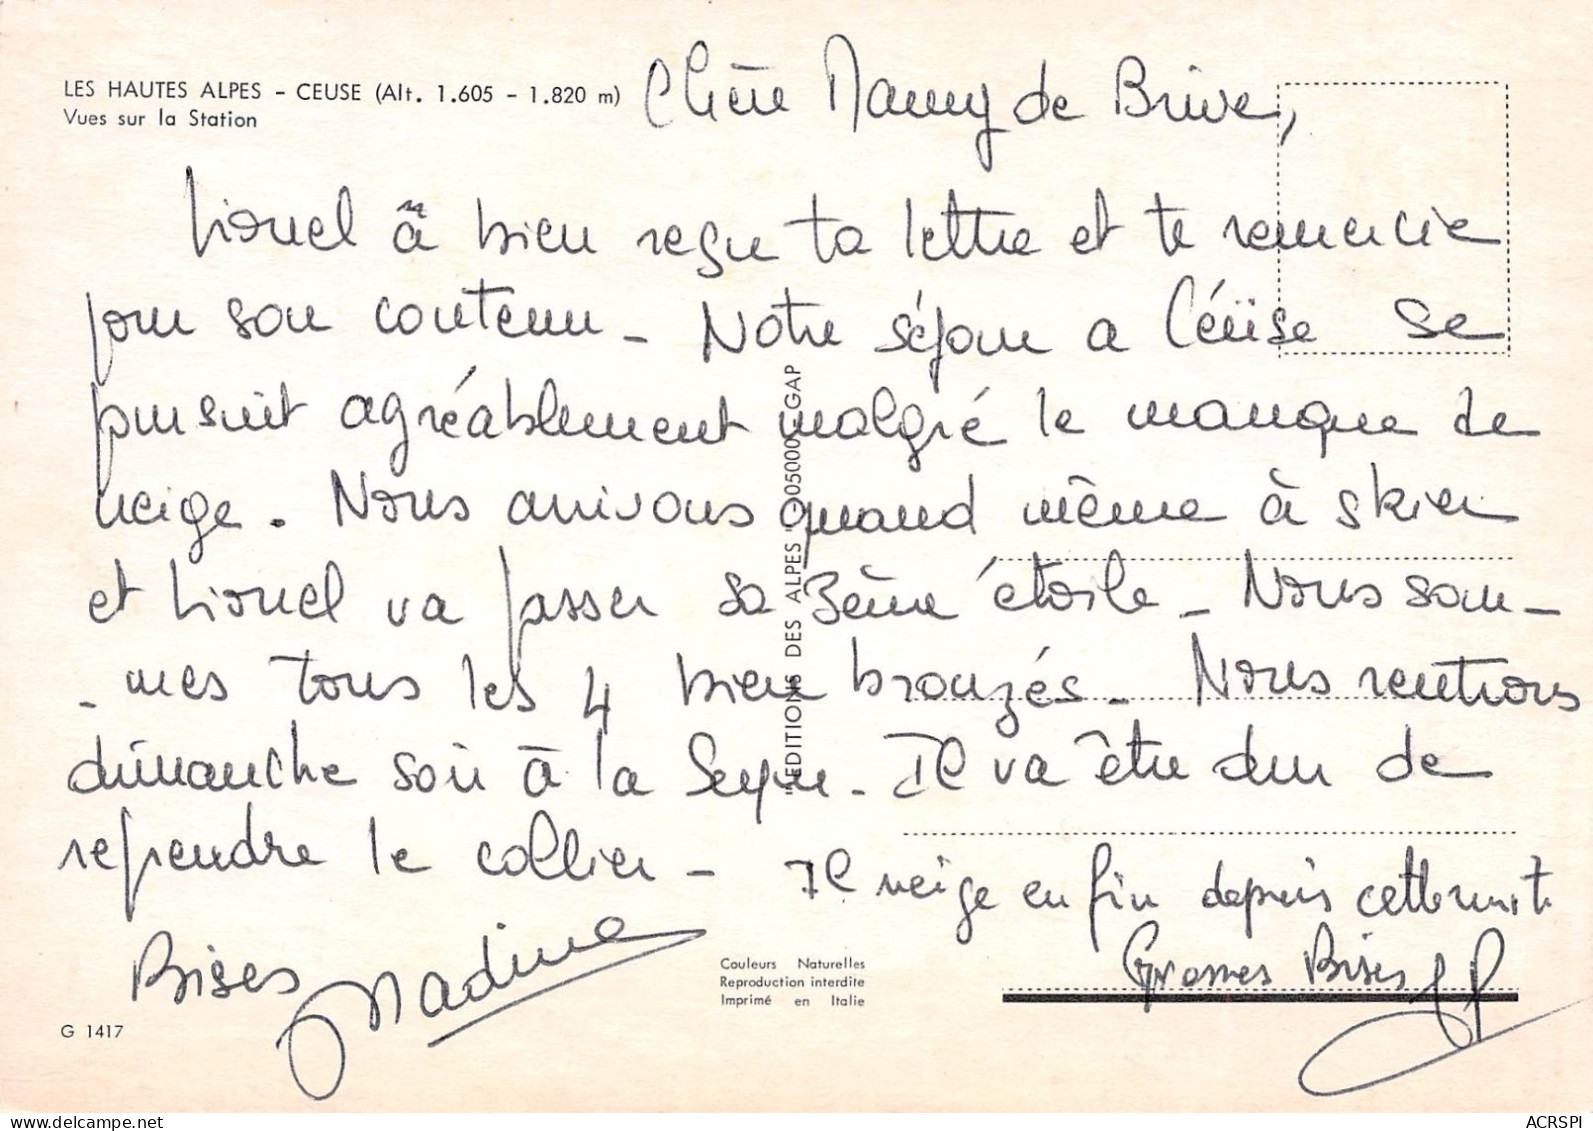 LES HAUTES ALPES - CEUSE (Alt. 1.605 - 1.820 m)
Vues sur la Station
Chère Mamy de Brive,
Lionel a bien reçu ta lettre et te remercie
pour son contenu - Notre séjour a Céüse se
poursuit agréablement malgré le manque de
neige. Nous arrivons quand même à skier
et Lionel va passer sa 3ème étoile - Nous som-
- mes tous les 4 bien bronzés - Nous rentrons
dimanche soir à la Seyne - Il va être dur de
reprendre le collier -
Il neige enfin depuis cette nuit
Grosses Bises JP
Bises Nadine
"EDITIONS DES ALPES" 05000 GAP
Couleurs Naturelles
Reproduction interdite
Imprimé en Italie
G 1417
delcampe.net
ACRSPI